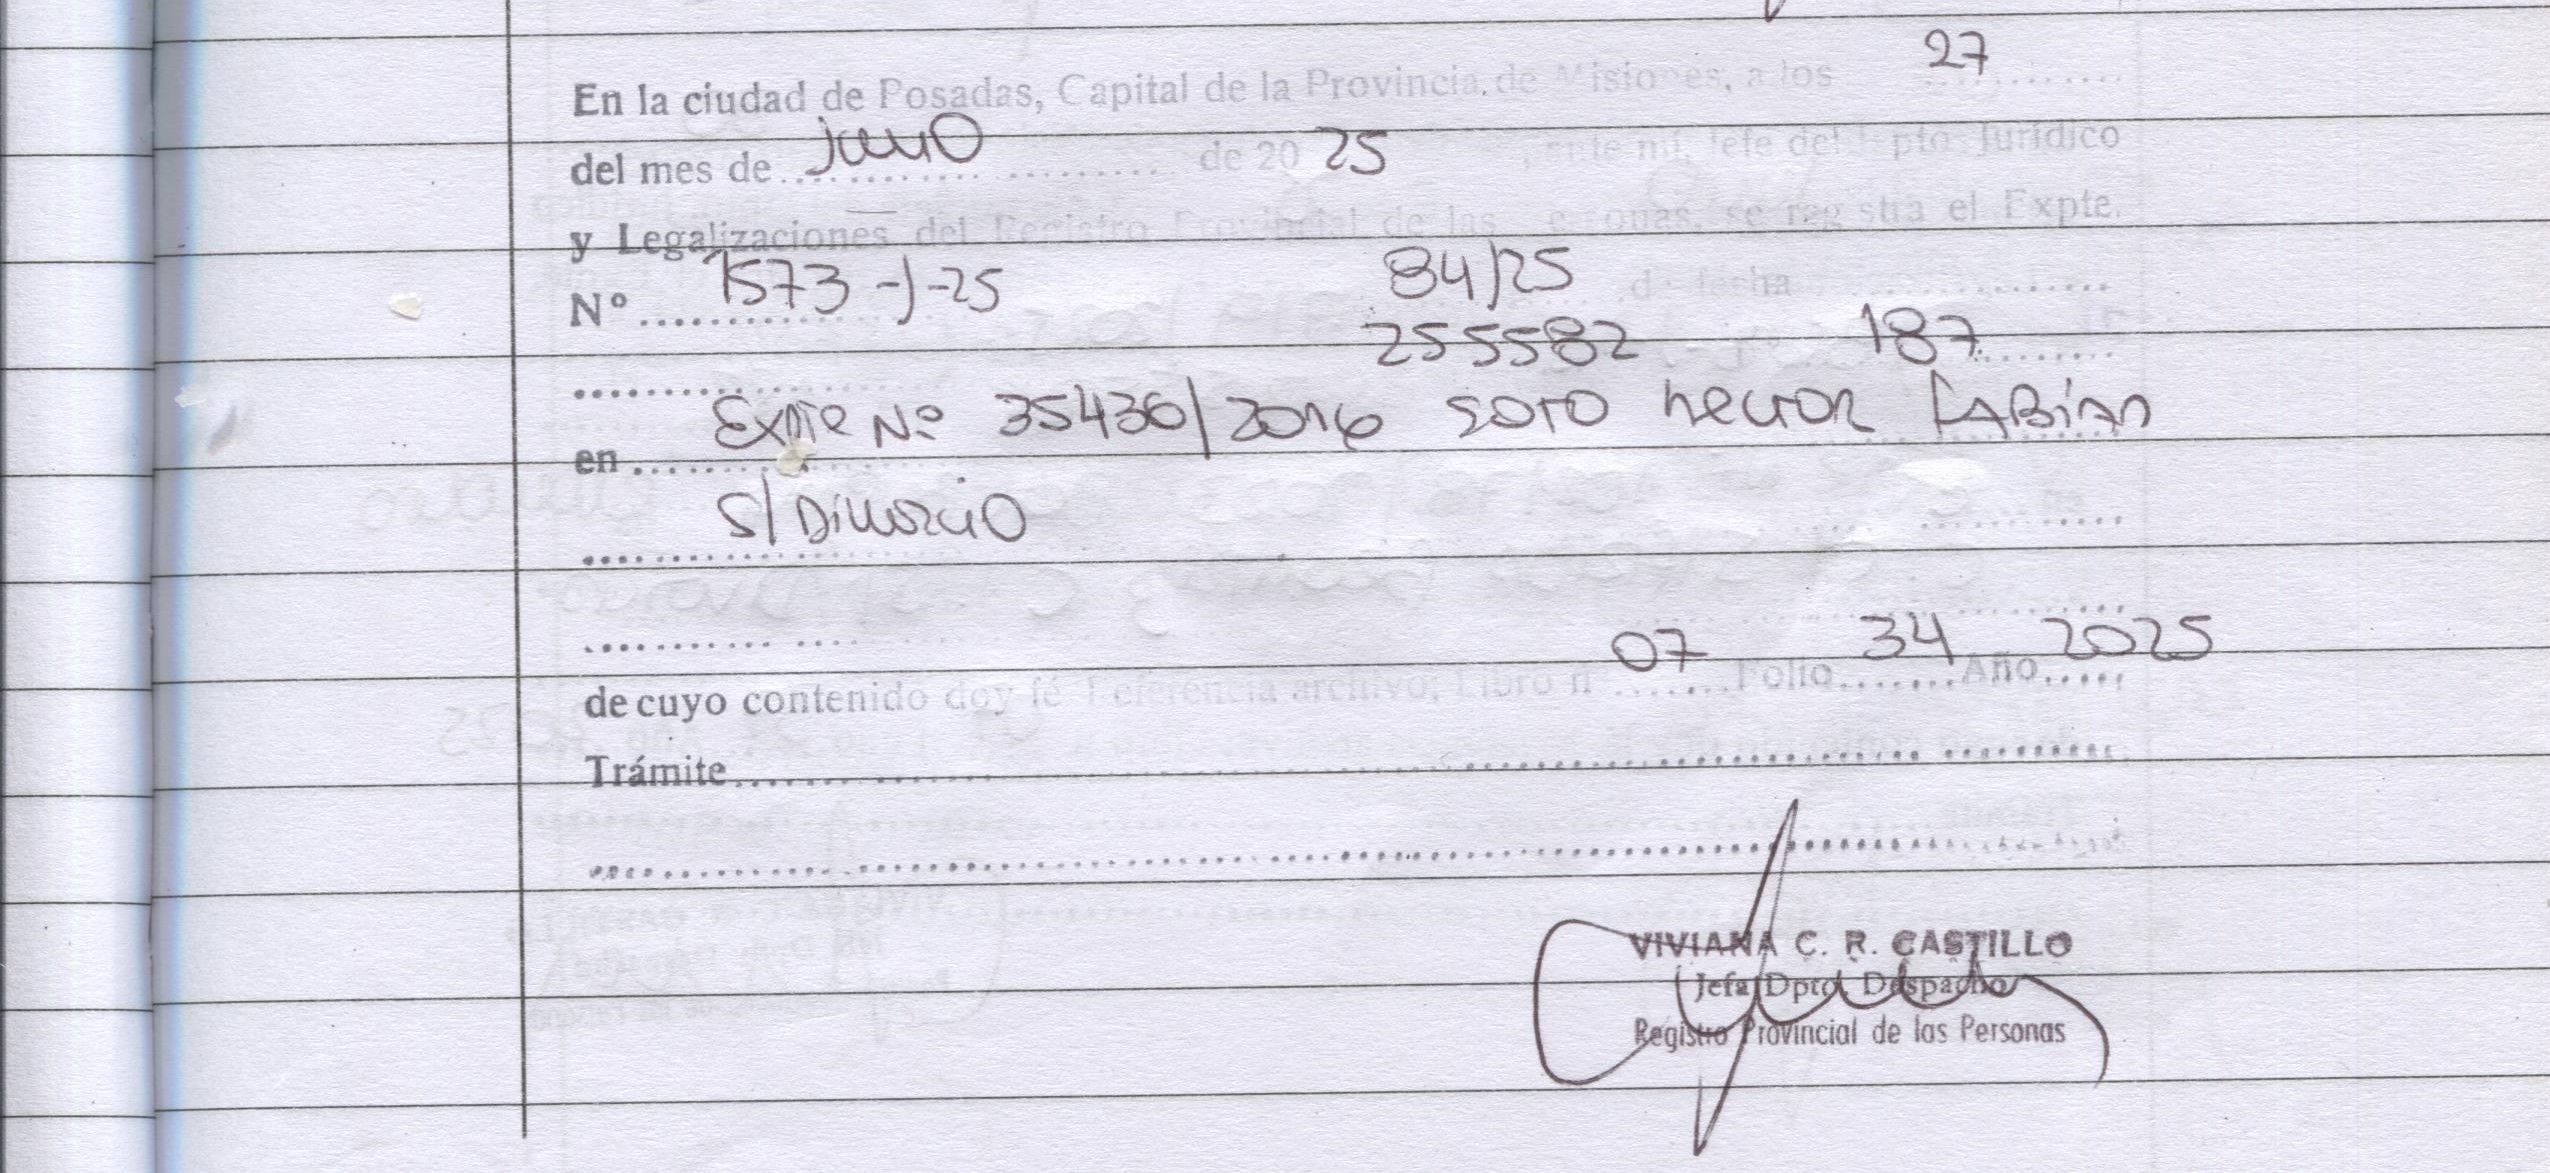 27
En la ciudad de Posadas, Capital de la Provincia de Misiones, a los ............
del mes de junio de 20 25, ante mi, Jefe del Dpto Jurídico
y Legalizaciones del Registro Provincial de las Personas, se registra el Expte.
Nº 1573-J-25 84/25 de fecha
255582 187
en Expte Nº 35436/2016 SOTO HECTOR FABIÁN
S/ DIVORCIO
07 34 2025
de cuyo contenido doy fé Referencia archivo, Libro nº ....... Folio ....... Año .....
Trámite
VIVIANA C. R. CASTILLO
Jefa Dpto. Despacho
Registro Provincial de las Personas